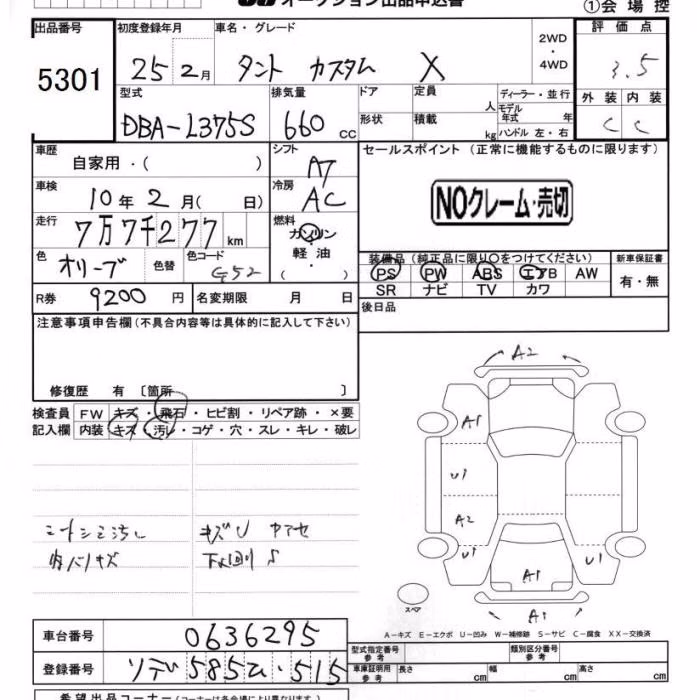 オークション出品申込書
①会場控
出品番号 初度登録年月 車名・グレード 2WD・4WD 評価点
5301 25年2月 タント カスタム X 3.5
型式 排気量 ドア 定員 人 ディーラー・並行 外装 内装
DBA-L375S 660 cc 形状 積載 kg モデル年式 年 ハンドル 左・右 C C
車歴 自家用・( ) シフト AT セールスポイント(正常に機能するものに限ります)
車検 10年2月( 日) 冷房 AC NOクレーム・売切
走行 7万7千277 km 燃料 ガソリン 軽油 ( )
色 オリーブ 色替 色コード G52 装備品(純正品に限り○をつけてください) 新車保証書
PS PW ABS エアB AW 有・無
R券 9200円 名変期限 月 日 SR ナビ TV カワ
注意事項申告欄(不具合内容等は具体的に記入して下さい) 後日品
修復歴 有 〔箇所 〕
検査員 FW キズ・飛石・ヒビ割・リペア跡・×要
記入欄 内装 キズ・汚レ・コゲ・穴・スレ・キレ・破レ
キズU
内バリキズ 下回りS
A2
A1
U1
A2
U1 U1
A1
A1
スペア
A-キズ E-エクボ U-凹み W-補修跡 S-サビ C-腐食 XX-交換済
車台番号 0636295 型式指定番号 参考 類別区分番号 参考
登録番号 585 515 車庫証明用 参考 長さ cm 幅 cm 高さ cm
希望出品コーナー(コーナーは各会場により異なります。)